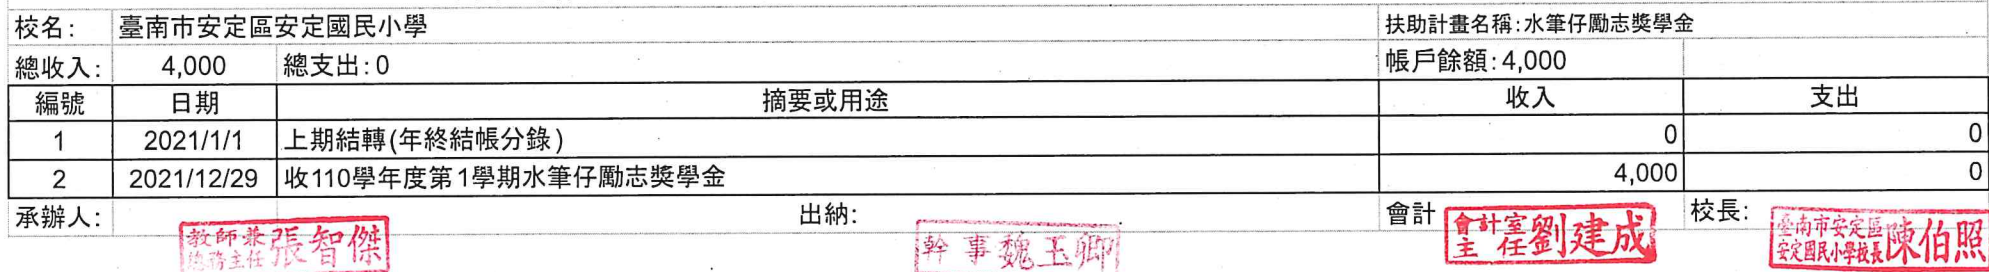 校名: 臺南市安定區安定國民小學 扶助計畫名稱:水筆仔勵志獎學金
總收入: 4,000 總支出:0 帳戶餘額:4,000
編號 日期 摘要或用途 收入 支出
1 2021/1/1 上期結轉(年終結帳分錄) 0 0
2 2021/12/29 收110學年度第1學期水筆仔勵志獎學金 4,000 0
承辦人: 出納: 會計 校長:
教師兼總務主任 張智傑 幹事 魏玉卿 會計室主任 劉建成 臺南市安定區安定國民小學校長 陳伯照